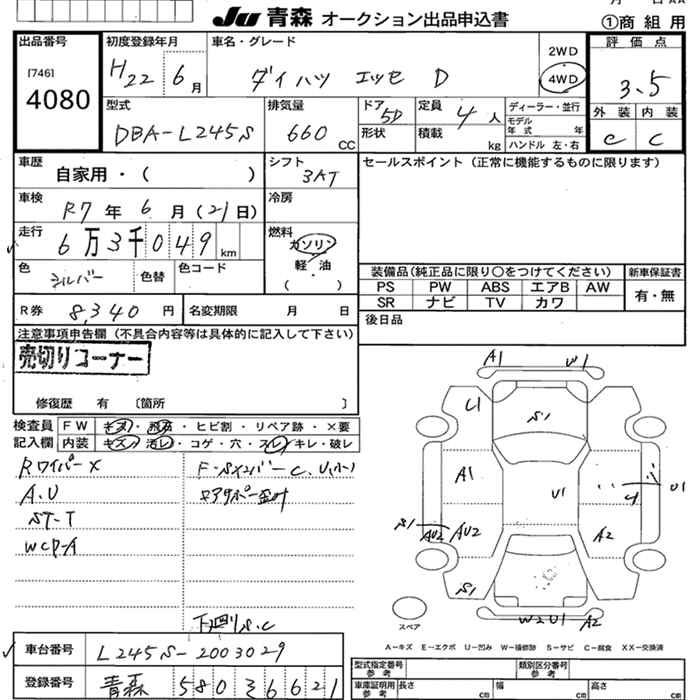 JU 青森 オークション出品申込書
①商 組 用
出品番号
[746]
4080
初度登録年月
H22 6月
車名・グレード
ダイハツ エッセ D
2WD
4WD
評価点
3.5
外装 内装
e c
型式
DBA-L245S
排気量
660 CC
ドア
5D
形状
定員
4 人
積載
kg
ディーラー・並行
モデル年式 年
ハンドル 左・右
車歴
自家用・( )
シフト
3AT
セールスポイント(正常に機能するものに限ります)
車検
R7 年 6 月 (21日)
冷房
走行
6万3千049 km
燃料
ガソリン
軽・油
( )
色
シルバー
色替
色コード
装備品(純正品に限り○をつけてください)
新車保証書
PS PW ABS エアB AW
SR ナビ TV カワ
有・無
R券 8,340 円
名変期限 月 日
後日品
注意事項申告欄(不具合内容等は具体的に記入して下さい)
売切りコーナー
修復歴 有 〔箇所 〕
検査員記入欄
FW キズ・飛石・ヒビ割・リペア跡・×要
内装 キズ・汚レ・コゲ・穴・スレ・キレ・破レ
Rワイパー×
A.U
ST-T
WCP-A
下廻りS.C
A1 W1
L1
S1
A1
U1
U1
S1
AU2 AU2
A2
S1
W2U1 A2
スペア
A-キズ E-エクボ U-凹み W-補修跡 S-サビ C-腐食 XX-交換済
車台番号 L245S-2003029
登録番号 青森 580 6621
型式指定番号
参考
類別区分番号
参考
車庫証明用
参考
長さ cm
幅 cm
高さ cm